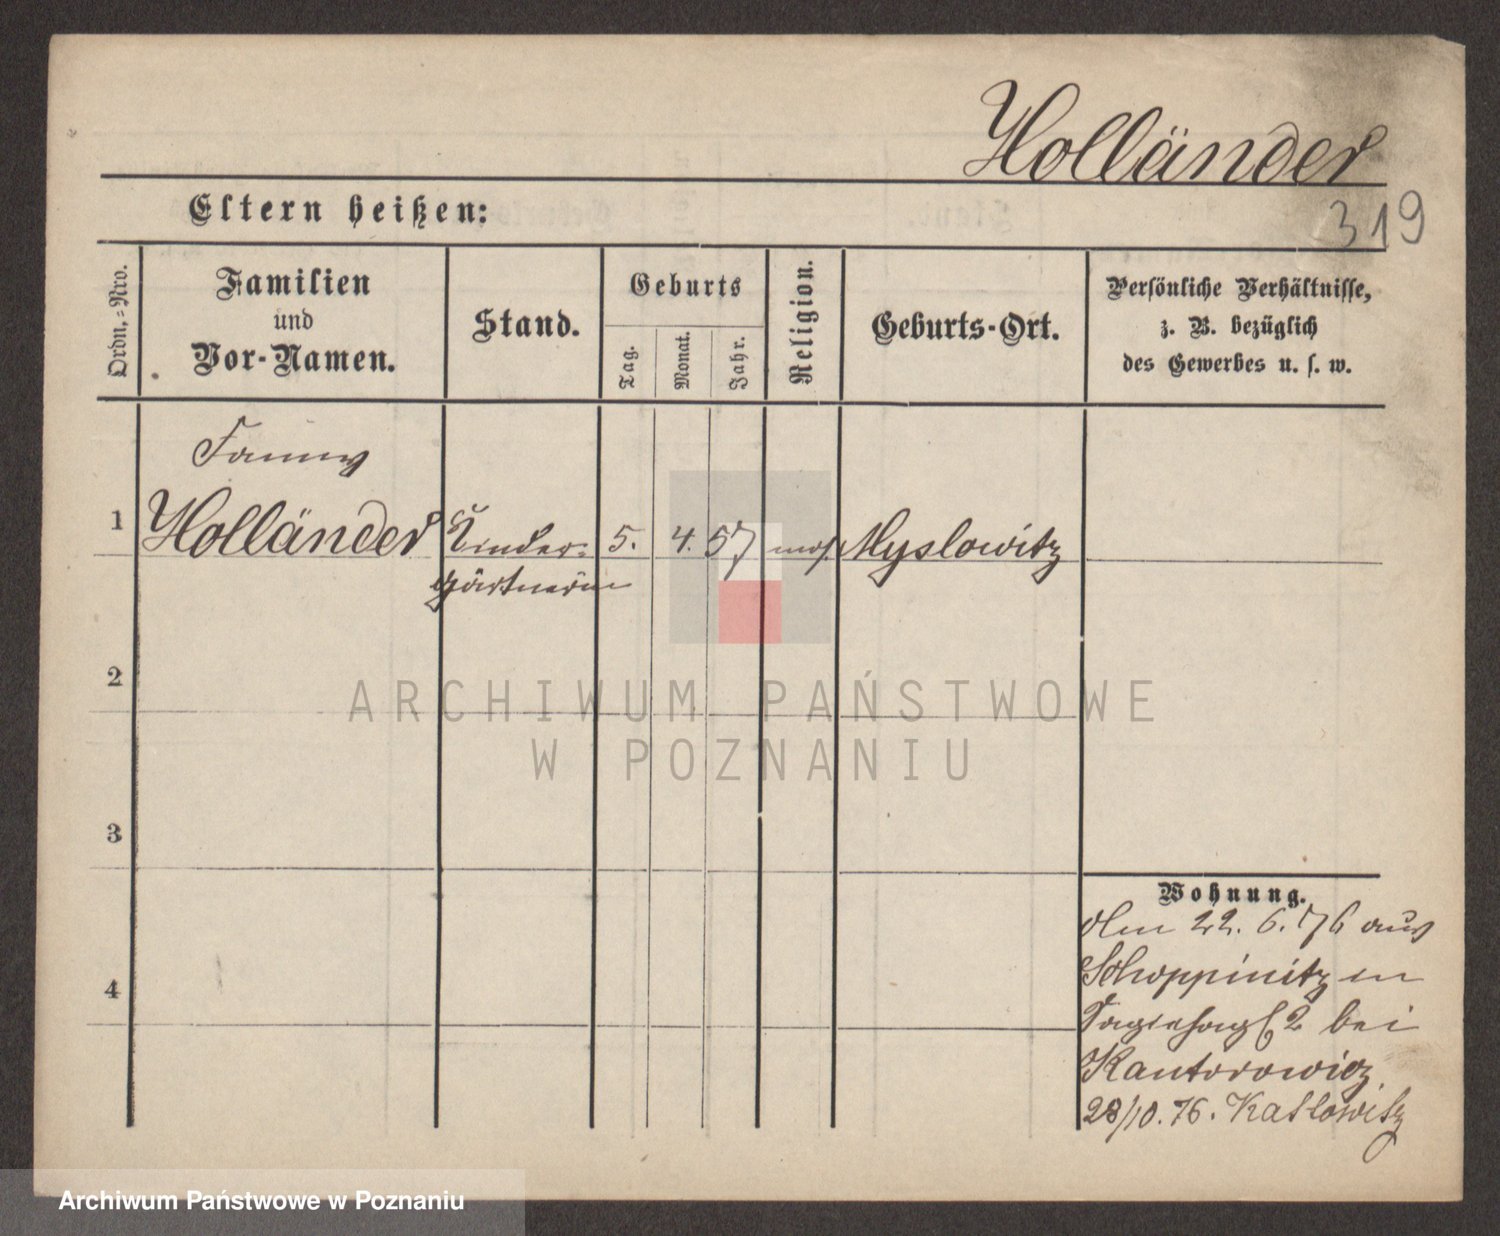 Holländer
319
Eltern heißen:
Ordn.=Nro.
Familien
und
Vor-Namen.
Stand.
Geburts
Tag.
Monat.
Jahr.
Religion.
Geburts-Ort.
Persönliche Verhältnisse,
z. B. bezüglich
des Gewerbes u. s. w.
Fanny
1 Holländer Kinder- 5. 4. 57 mos. Myslowitz
gärtnerin
2
ARCHIWUM PAŃSTWOWE
W POZNANIU
3
4
Wohnung.
Am 22. 6. 76 aus
Schoppinitz in
2 bei
Kantorowicz
28/10. 76. Kattowitz
Archiwum Państwowe w Poznaniu